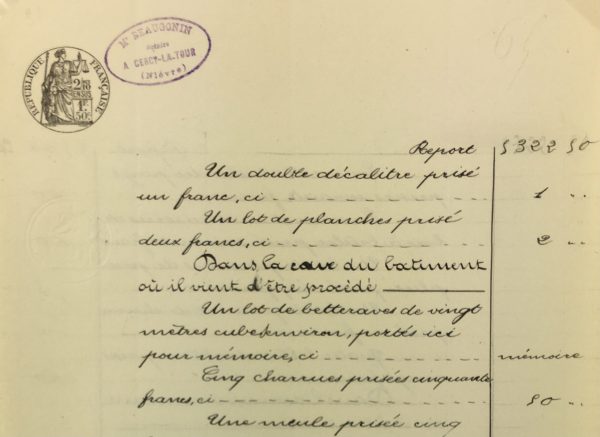 RÉPUBLIQUE FRANÇAISE
2/10 EN SUS
1F 50c
Me BEAUGONIN
Notaire
A CERCY-LA-TOUR
(Nièvre)
Report 5322 50
Un double décalitre prisé
un franc, ci 1 "
Un lot de planches prisé
deux francs, ci 2 "
Dans la cave du bâtiment
où il vient d'être procédé
Un lot de betteraves de vingt
mètres cube environ, portés ici
pour mémoire, ci mémoire
Cinq charrues prisées cinquante
francs, ci 50 "
Une meule prisée cinq